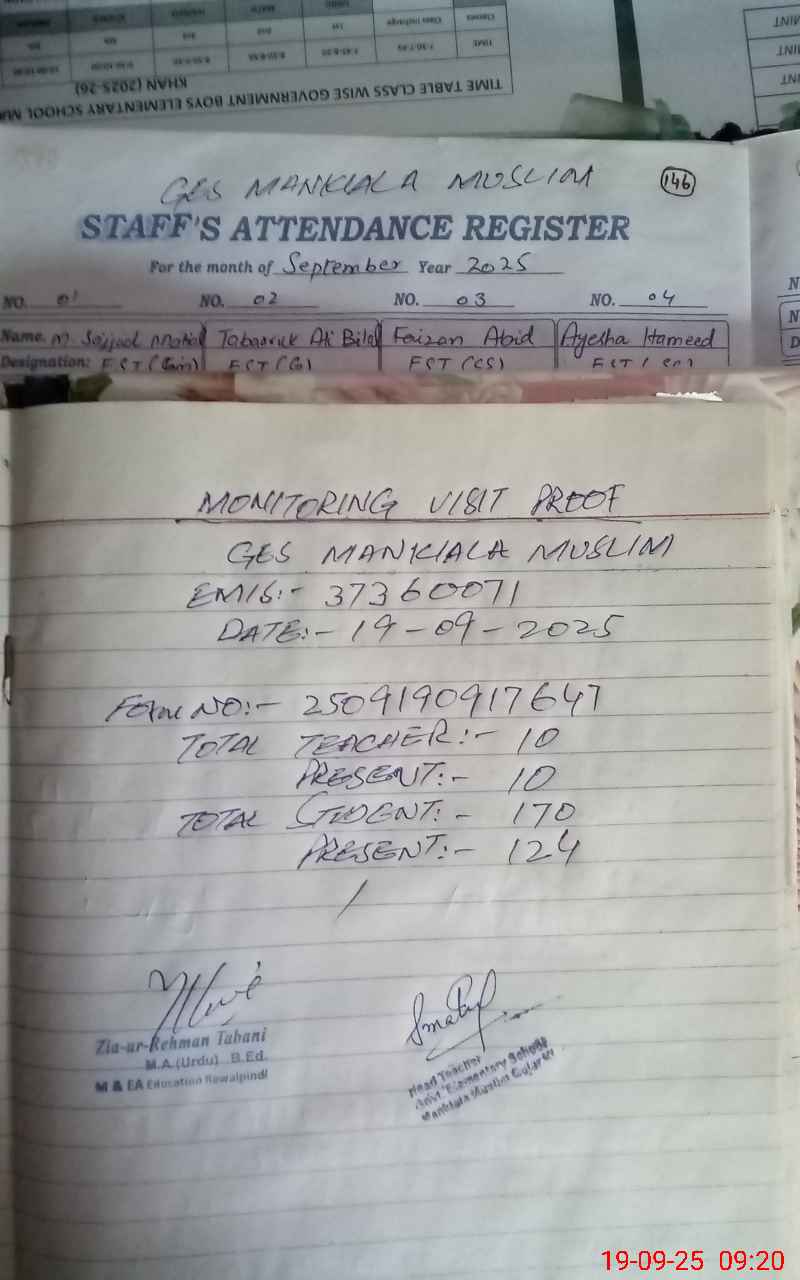 TIME TABLE CLASS WISE GOVERNMENT BOYS ELEMENTARY SCHOOL
KHAN (2025-26)
TIME
Classes
Class Incharge
GES MANKIALA MUSLIM
146
STAFF'S ATTENDANCE REGISTER
For the month of September Year 2025
NO. 01 NO. 02 NO. 03 NO. 04
Name. M. Sajjad Tabaaruk Ali Bilal Faizan Abid Ayesha Hameed
Designation: EST EST (G) EST (CS) EST
MONITORING VISIT PROOF
GES MANKIALA MUSLIM
EMIS:- 37360071
DATE:- 19-09-2025
Form NO:- 2509190917647
TOTAL TEACHER:- 10
PRESENT:- 10
TOTAL STUDENT:- 170
PRESENT:- 124
Zia-ur-Rehman Tabani
M.A.(Urdu) B.Ed.
M & EA Education Rawalpindi
Head Teacher
Govt. Elementary School
Mankiala Muslim Gujar
19-09-25 09:20